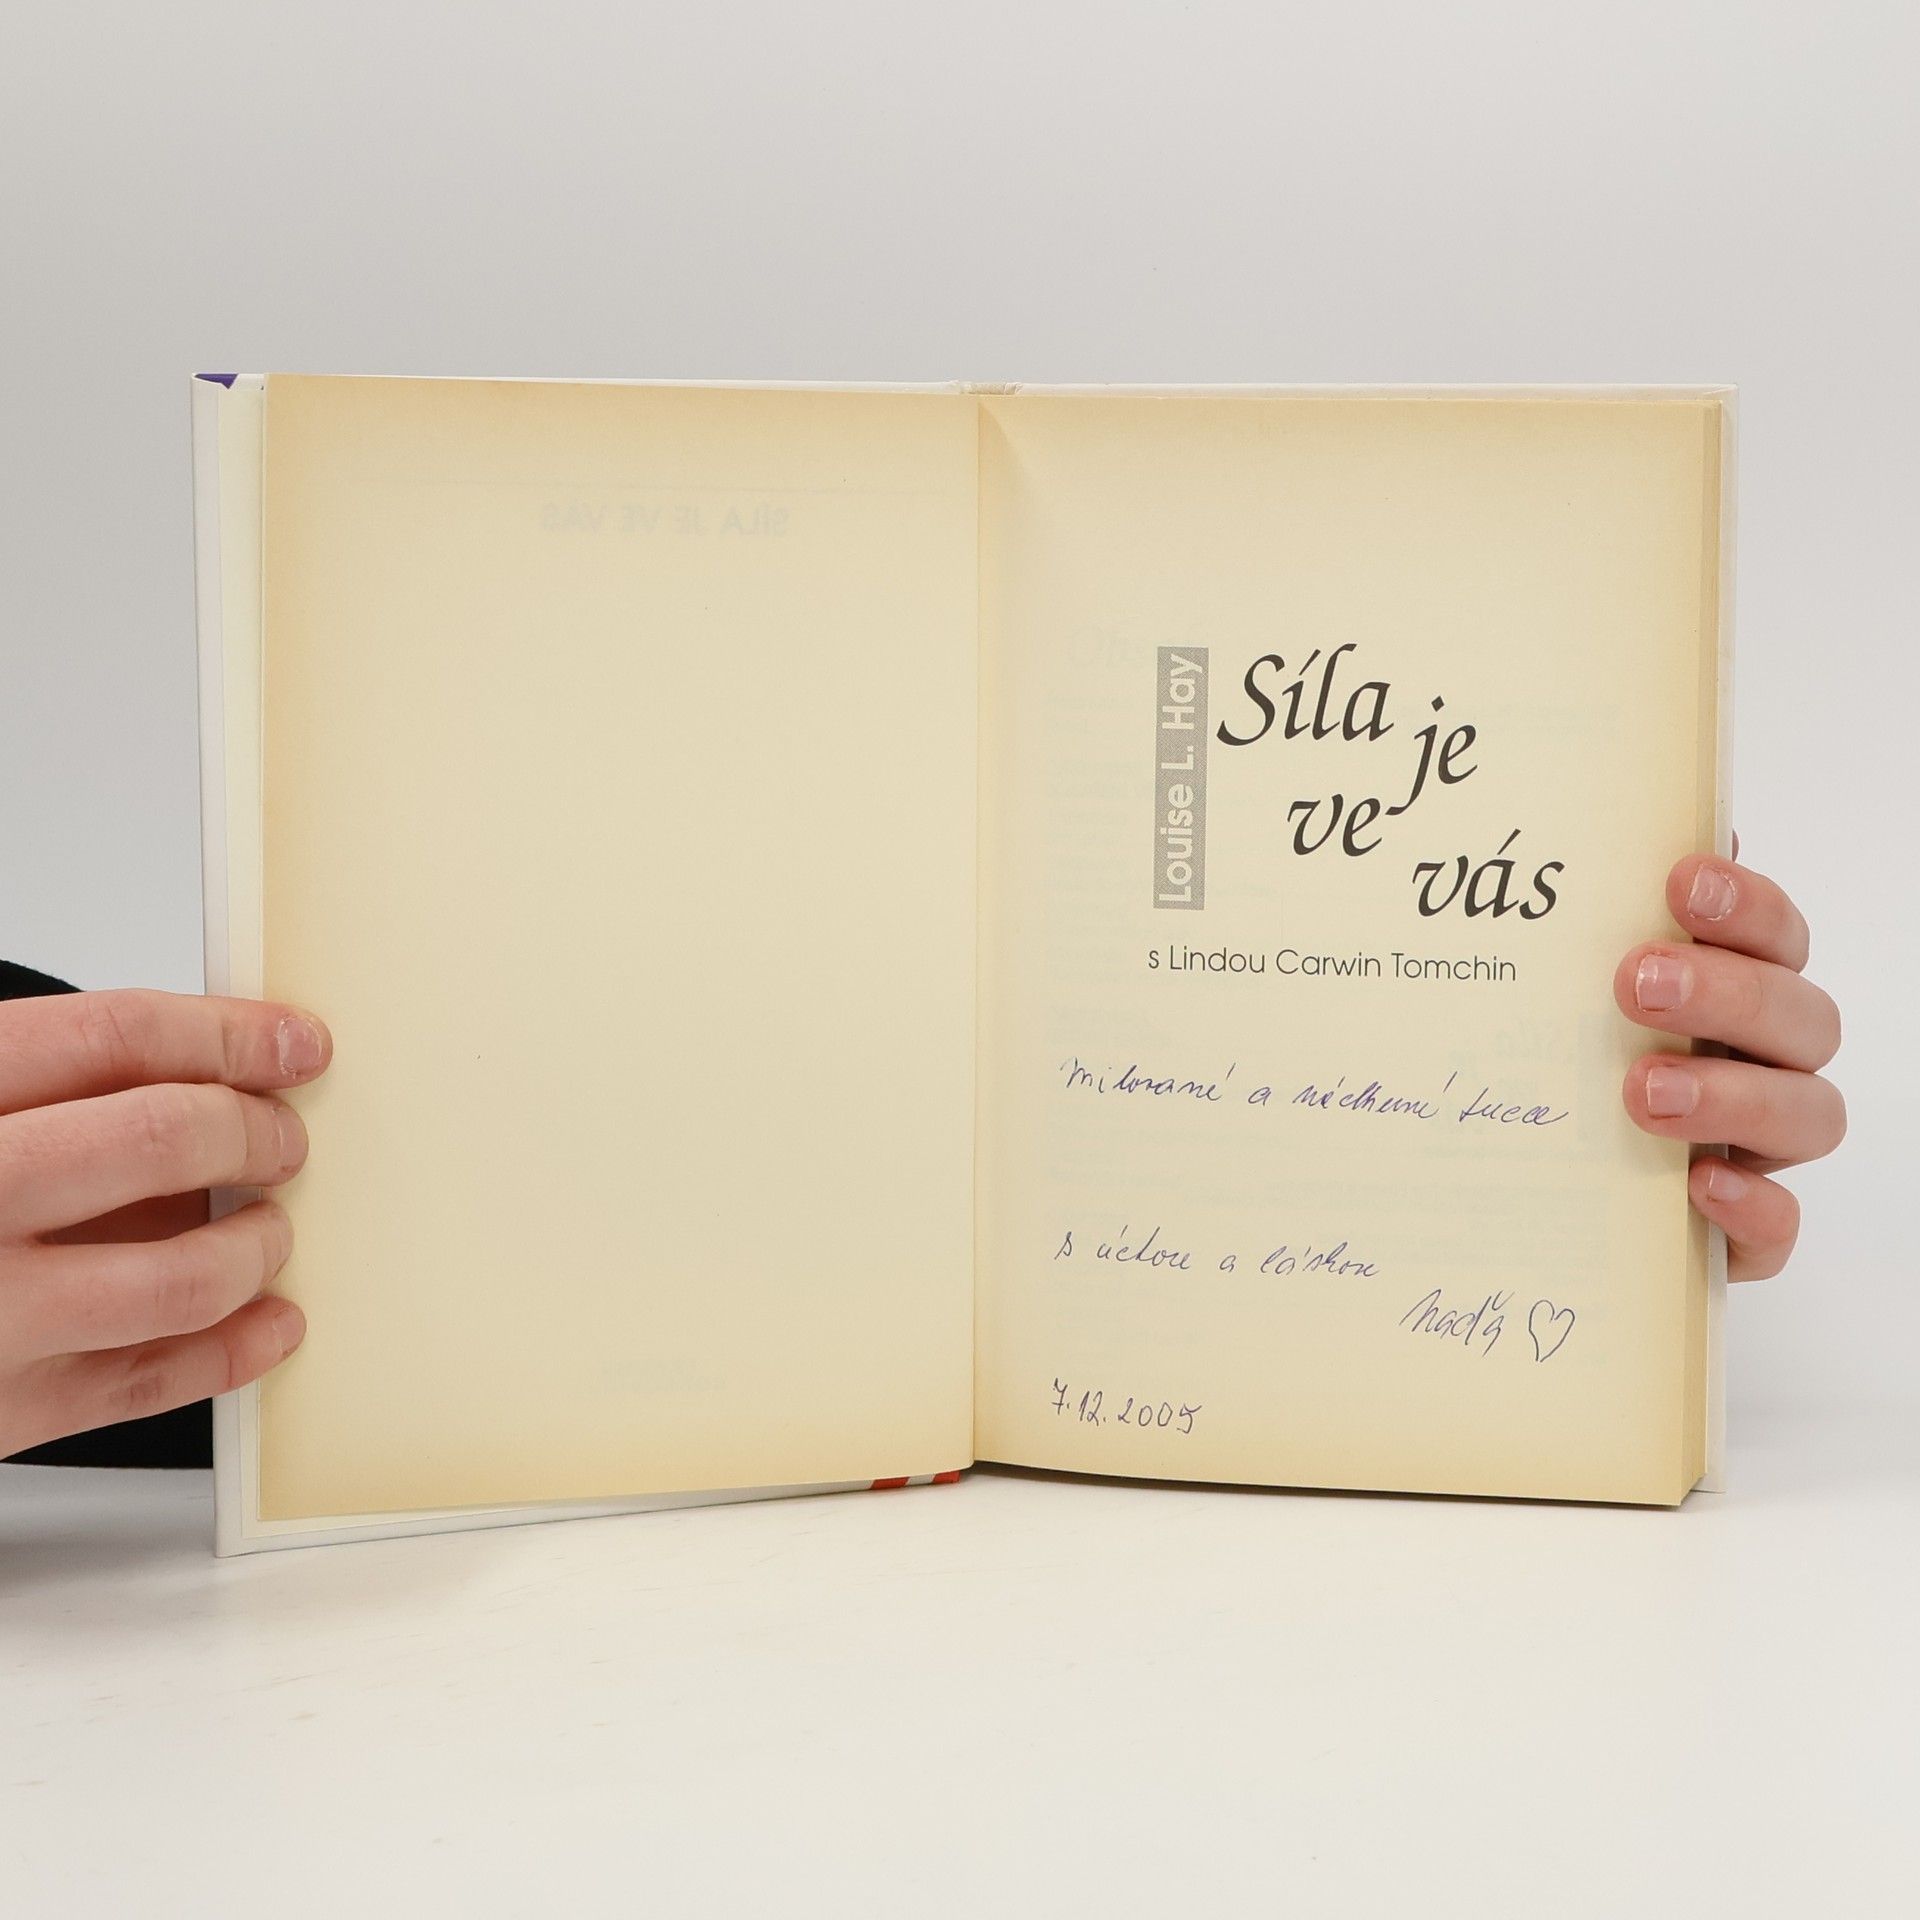 SÍLA JE VE VÁS
Louise L. Hay
Síla je
ve
vás
s Lindou Carwin Tomchin
Milované a nádherné Lucce
s úctou a láskou
Naďa
7.12.2005